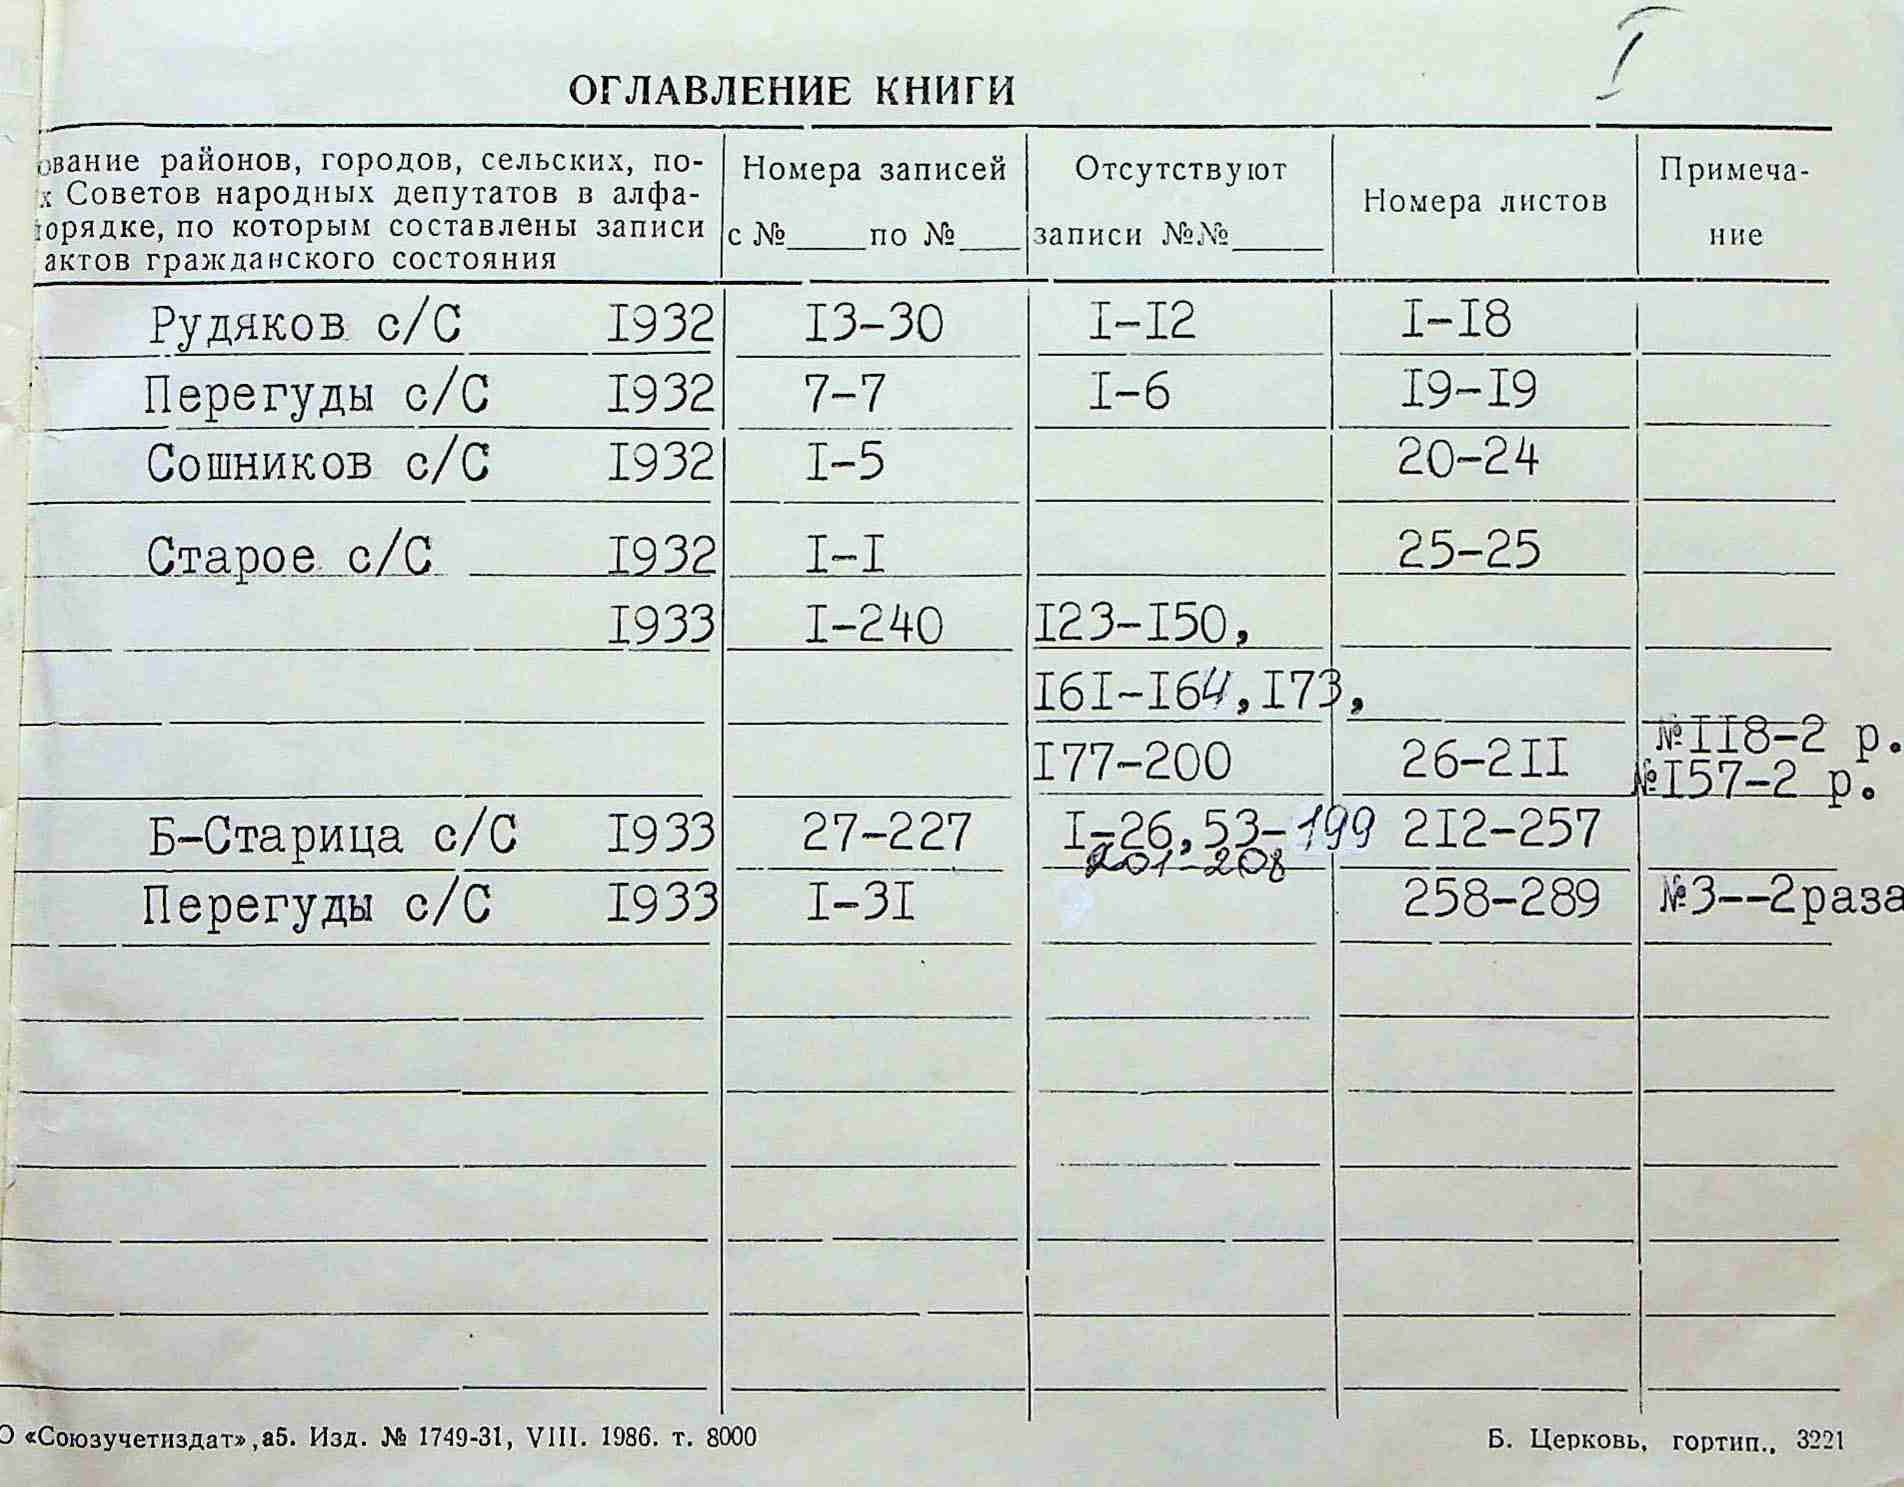 I
ОГЛАВЛЕНИЕ КНИГИ
ование районов, городов, сельских, по-
х Советов народных депутатов в алфа-
порядке, по которым составлены записи
актов гражданского состояния
Номера записей
с №_____по №____
Отсутствуют
записи №№______
Номера листов
Примеча-
ние
Рудяков с/С 1932 I3-30 I-I2 I-I8
Перегуды с/С I932 7-7 I-6 I9-I9
Сошников с/С I932 I-5 20-24
Старое с/С I932 I-I 25-25
I933 I-240 I23-I50,
I6I-I64,I73,
I77-200 26-2II №II8-2 р.
№I57-2 р.
Б-Старица с/С I933 27-227 I-26,53-199 2I2-257
201-208
Перегуды с/С I933 I-3I 258-289 №3--2раза
О «Союзучетиздат», а5. Изд. № 1749-31, VIII. 1986. т. 8000
Б. Церковь, гортип., 3221